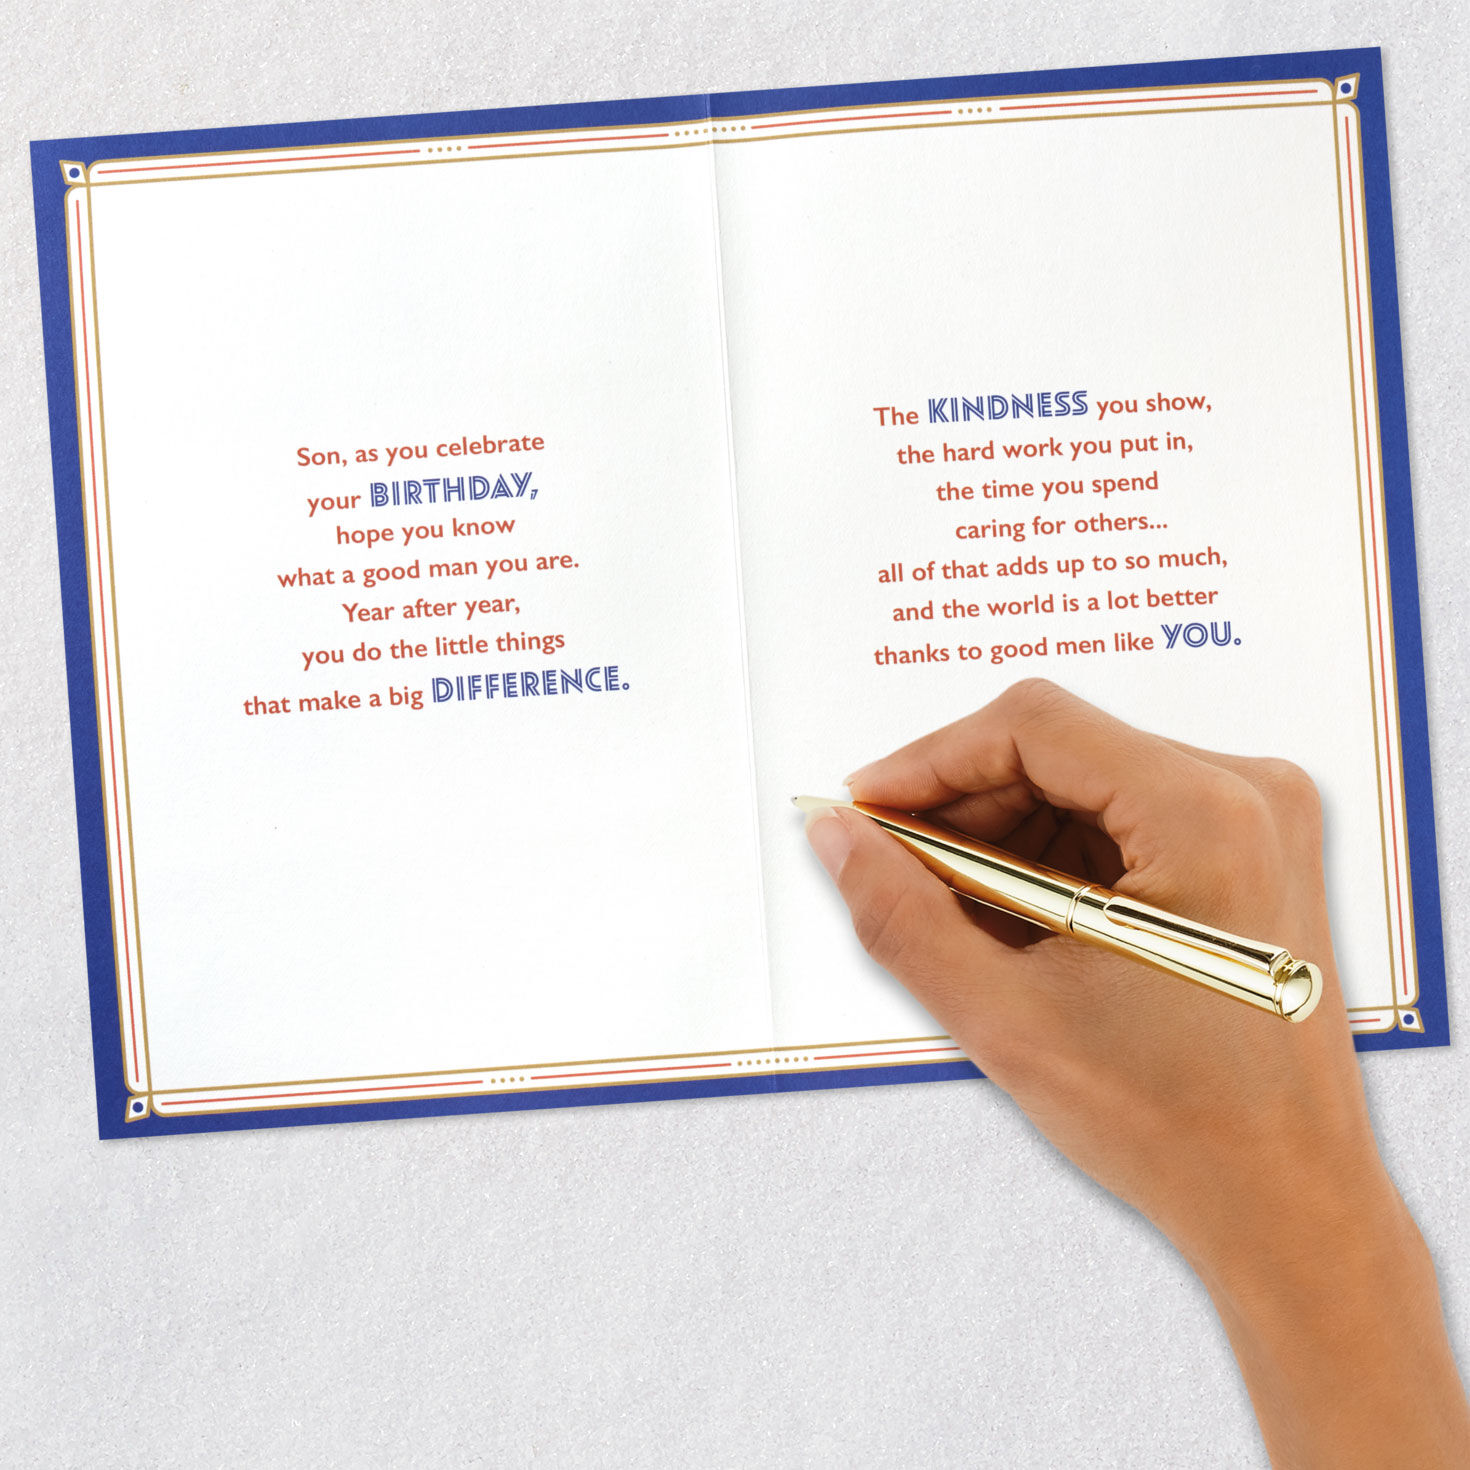 Son, as you celebrate
your BIRTHDAY,
hope you know
what a good man you are.
Year after year,
you do the little things
that make a big DIFFERENCE.
The KINDNESS you show,
the hard work you put in,
the time you spend
caring for others...
all of that adds up to so much,
and the world is a lot better
thanks to good men like YOU.